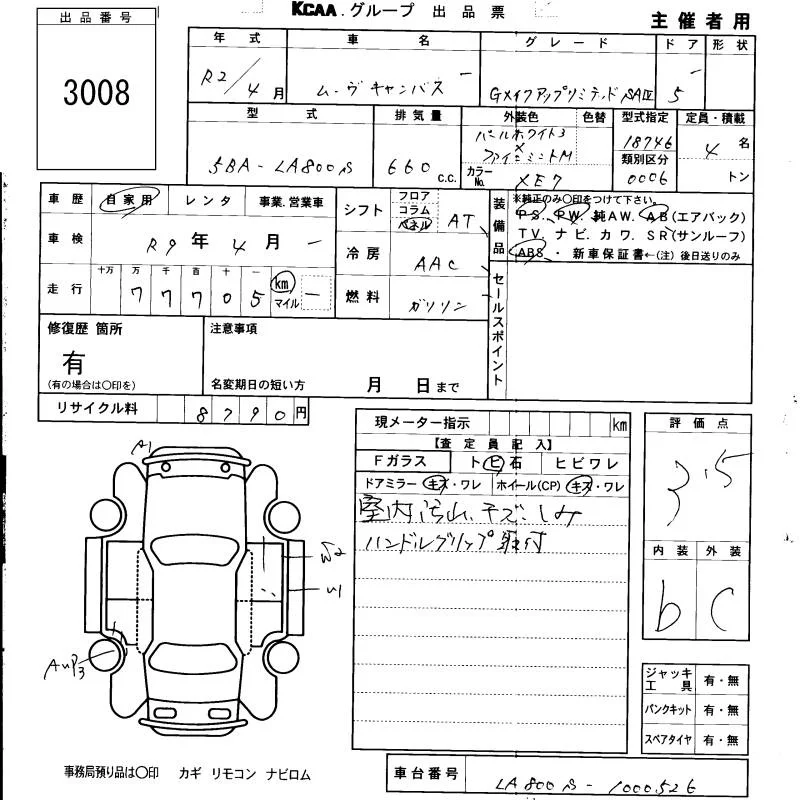 KCAA.グループ 出品票
主催者用
出品番号
3008
年式 車名 グレード ドア 形状
R2/4月 ムーヴキャンバス Gメイクアップリミテッド SAⅢ 5
型式 排気量 外装色 色替 型式指定 定員・積載
5BA-LA800S 660 c.c. パールホワイト3 × ファインミントM 18746 4名
カラーNo. XE7 類別区分 0006 トン
車歴 自家用 レンタ 事業.営業車
シフト フロア コラム パネル AT
装備品 ※純正のみ〇印をつけて下さい。
PS. PW. 純AW. AB(エアバック)
TV. ナビ. カワ. SR(サンルーフ)
ABS ・ 新車保証書←(注) 後日送りのみ
車検 R9年4月
冷房 AAC
走行 十万 万 千 百 十 一
77705 km マイル
燃料 ガソリン
セールスポイント
修復歴 箇所
有
(有の場合は〇印を)
注意事項
名変期日の短い方 月 日まで
リサイクル料 8790円
現メーター指示 km
【査定員記入】
Fガラス トビ石 ヒビワレ
ドアミラー キズ・ワレ ホイール(CP) キズ・ワレ
室内汚れ、キズ、しみ
ハンドルグリップ取付
評価点
3.5
内装 外装
b C
A1
W2
U1
AUP3
ジャッキ工具 有・無
パンクキット 有・無
スペアタイヤ 有・無
事務局預り品は〇印 カギ リモコン ナビロム
車台番号 LA800S-1000526